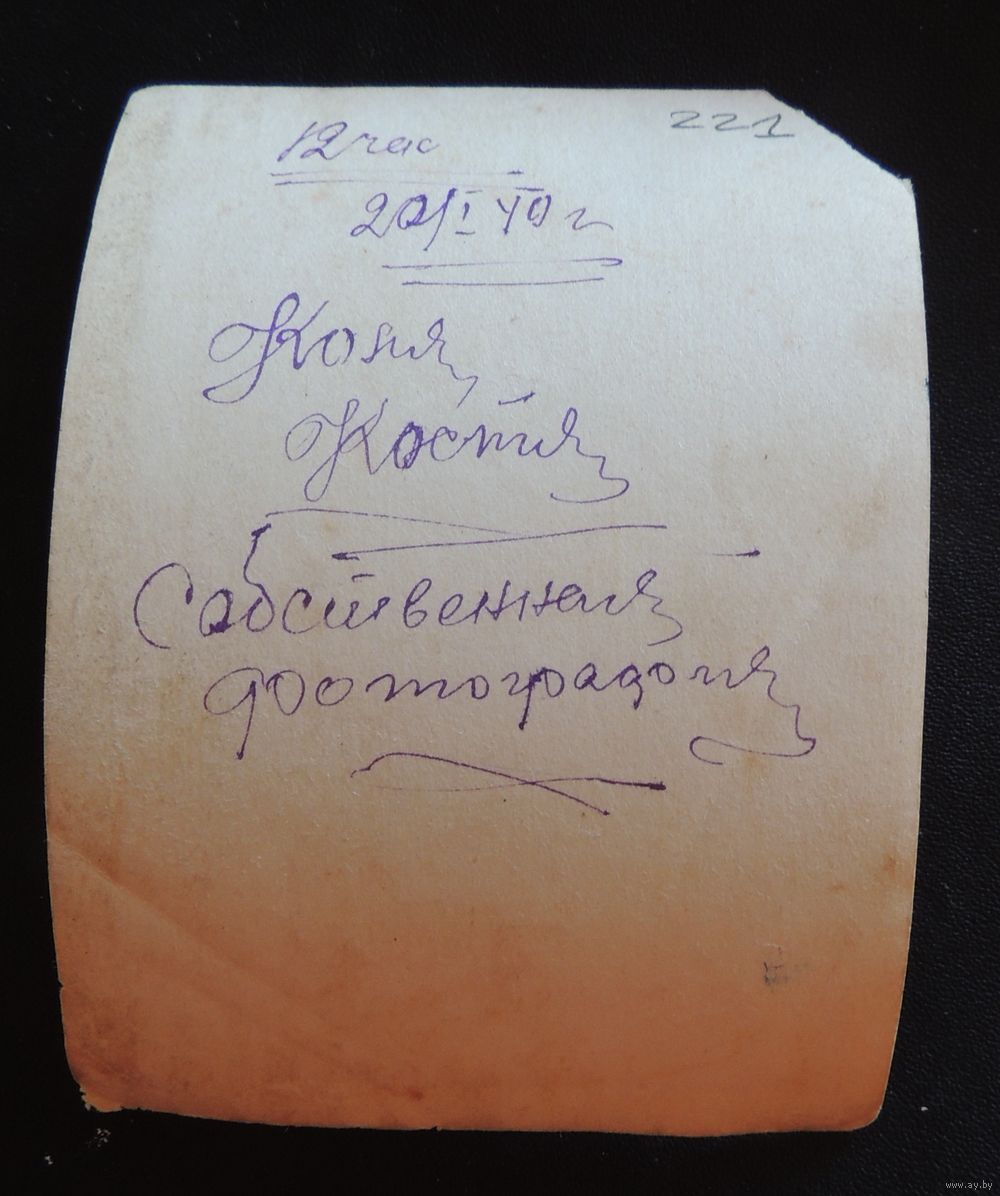 221
12 час
20/I 40 г
Коля,
Костя
Собственная
фотография
www.ay.by